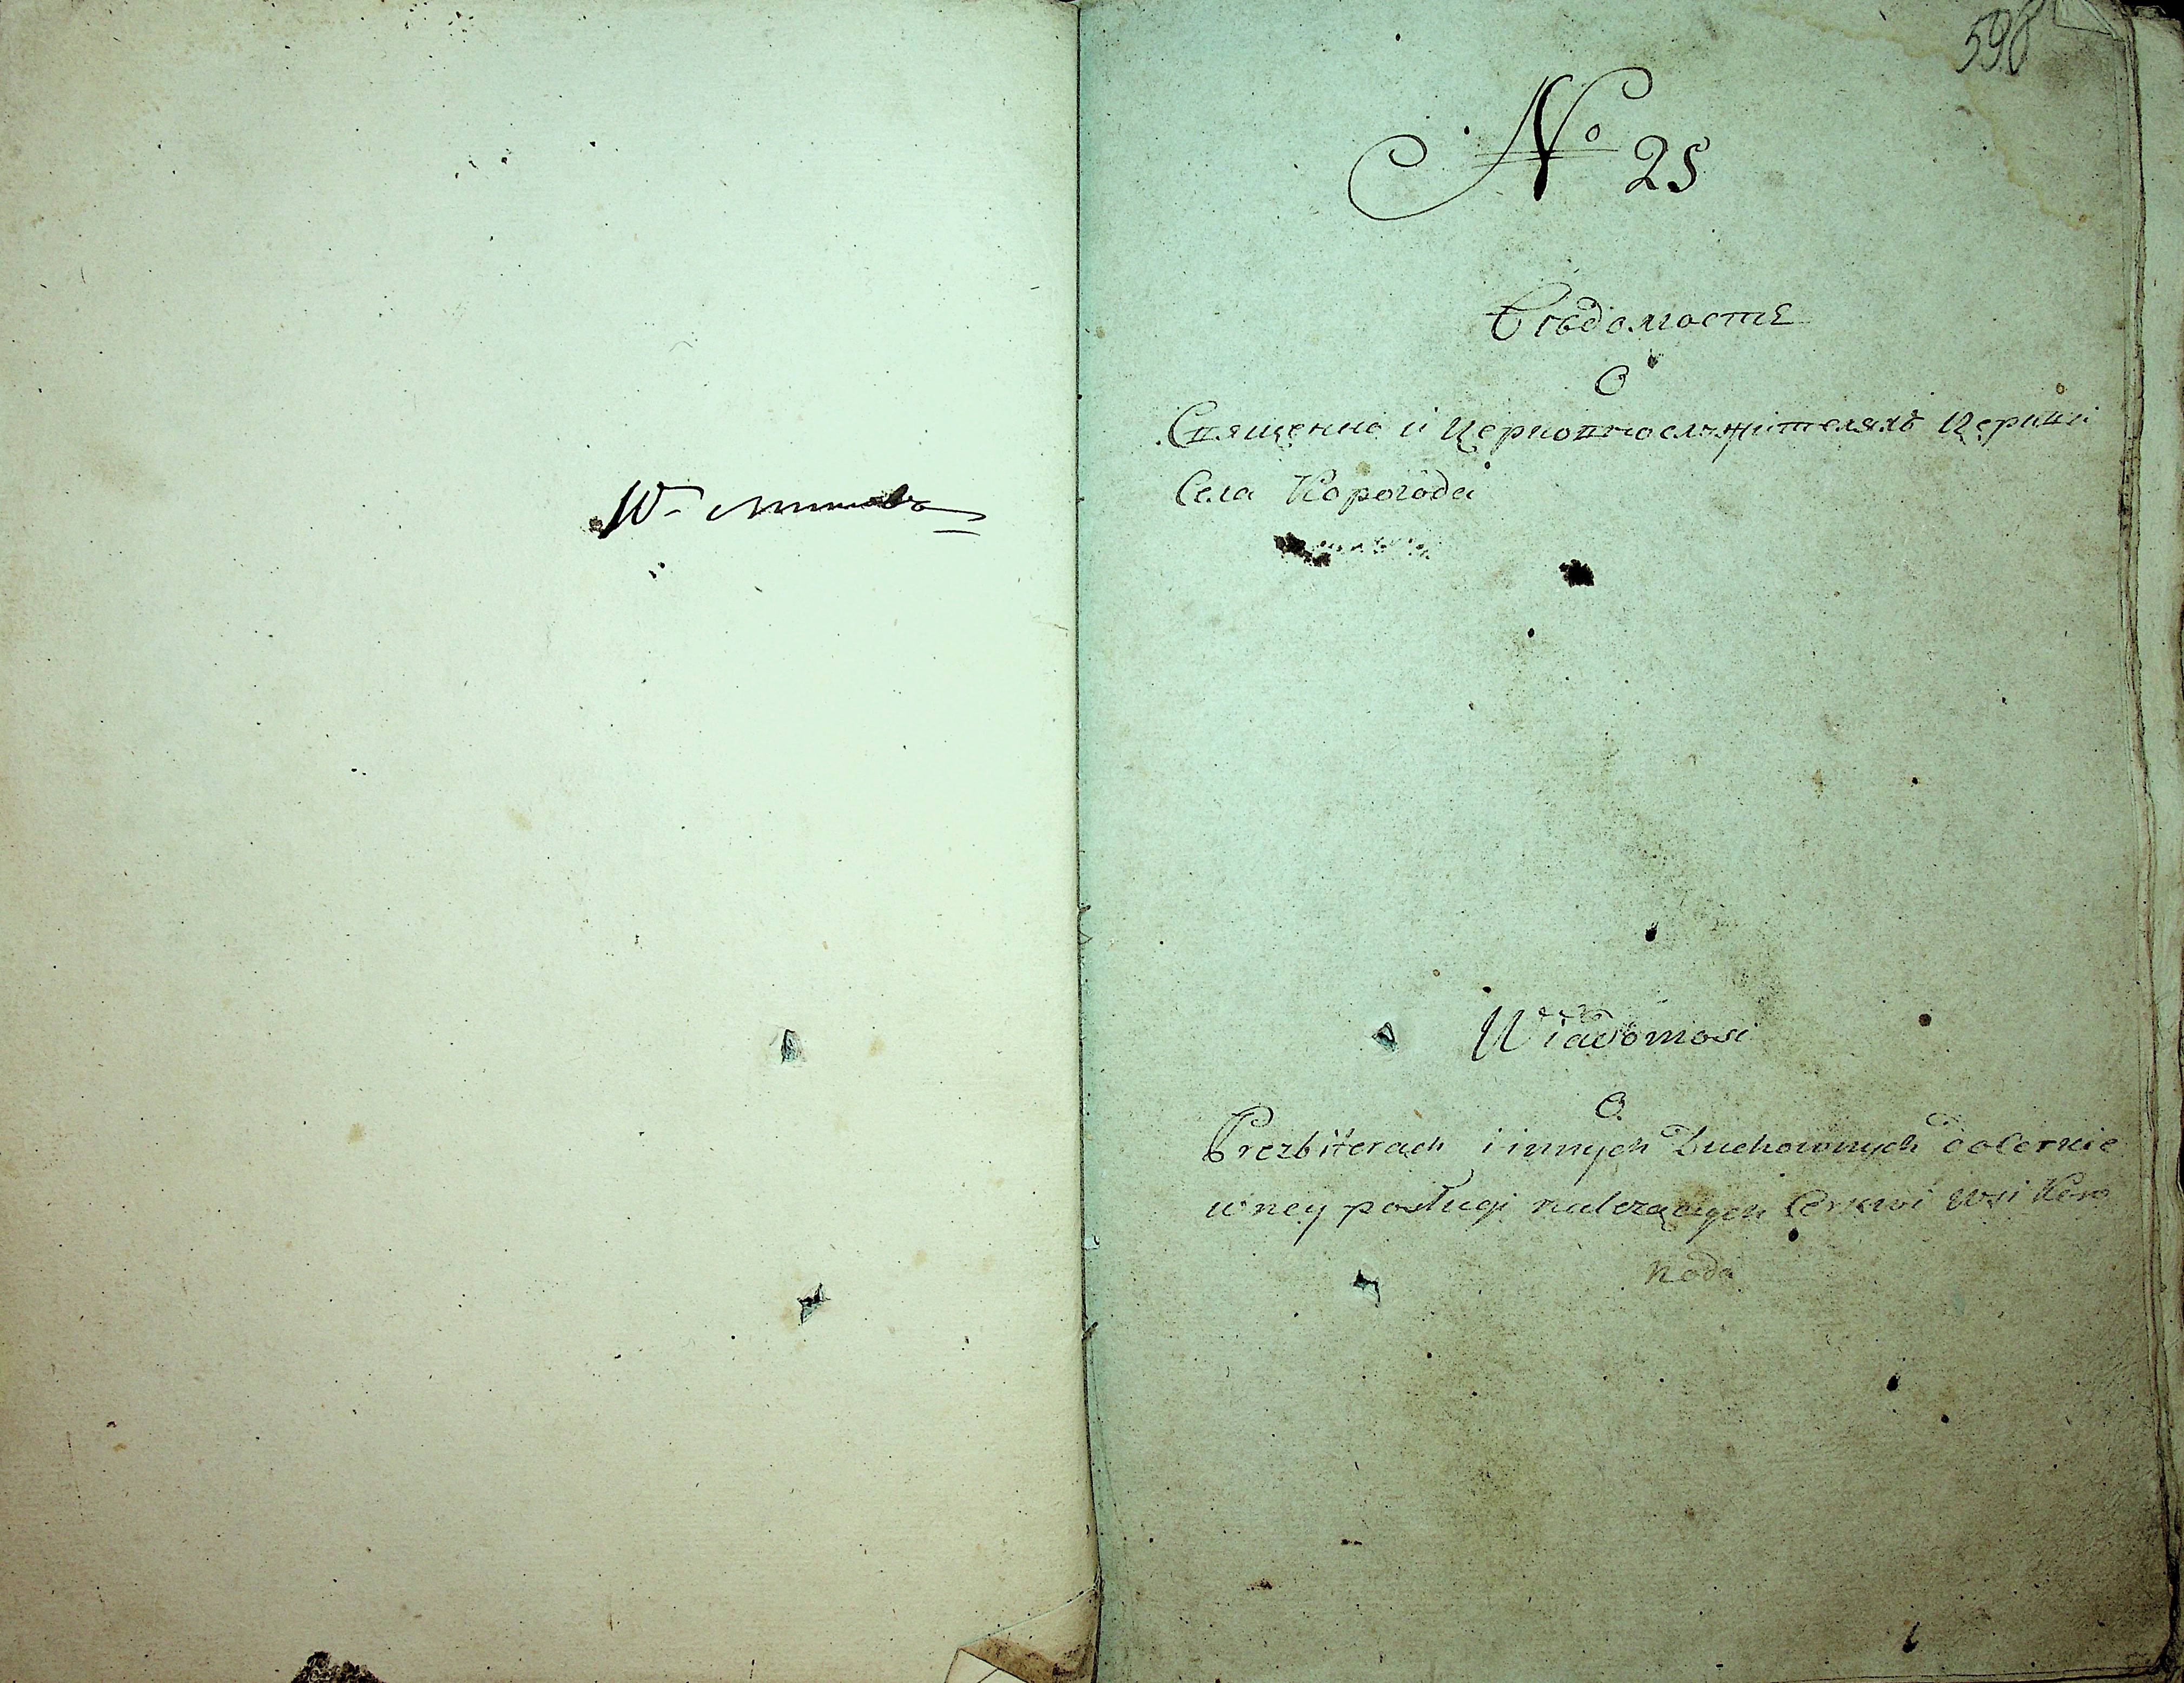 598
№ 25
Вѣдомость
О
Священно и церковнослужителяхъ церкви
Села Корогода
Wiadomosc
O
Prezbiterach i innych Duchownych do Cerkie
wney posługi należących Cerkwi Wsi Koro
hoda